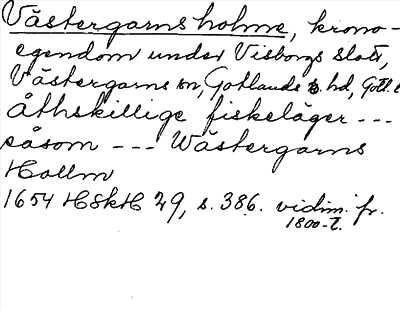 Västergarns holme, krono-
egendom under Visborgs slott,
Västergarns sn, Gotlands s. hd, Gotl. l
Åthskillige fiskeläger ---
såsom --- Wästergarns
Hollm
1654 HSkH 29, s. 386. vidim. fr.
1800-t.